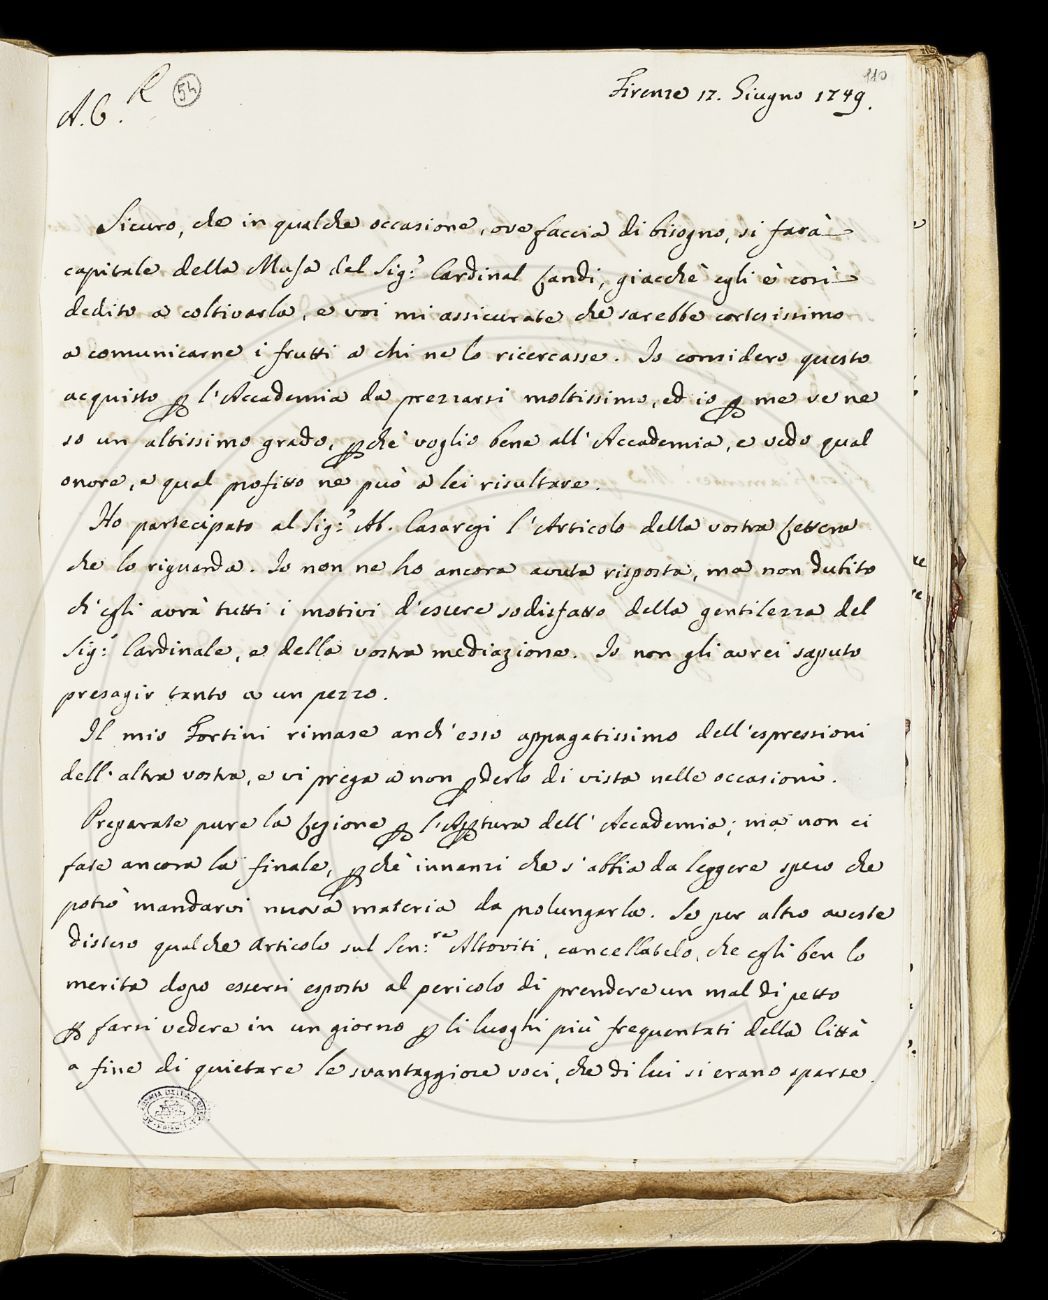 110
A. C. R (54) Firenze 17. Giugno 1749.
Sicuro, che in qualche occasione, ove faccia di bisogno, si farà
capitale della Musa del Sig.r Cardinal Landi, giacchè egli è così
dedito a coltivarla, e voi mi assicurate che sarebbe cortesissimo
a comunicarne i frutti a chi ne lo ricercasse. Io considero questo
acquisto p l'Accademia da prezzarsi moltissimo, ed io p me ve ne
so un altissimo grado, pchè voglio bene all'Accademia, e vedo qual
onore, e qual profitto ne può a lei risultare.
Ho partecipato al Sig.r Ab. Casaregi l'Articolo della vostra Lettera
che lo riguarda. Io non ne ho ancora avuta risposta, ma non dubito
ch'egli avrà tutti i motivi d'essere sodisfatto della gentilezza del
Sig.r Cardinale, e della vostra mediazione. Io non gli avrei saputo
presagir tanto a un pezzo.
Il mio Fortini rimase anch'esso appagatissimo dell'espressioni
dell'altra vostra, e vi prega a non pderlo di vista nelle occasioni.
Preparate pure la Lezione p l'Aptura dell'Accademia; ma non ci
fate ancora la finale, pchè innanzi che s'abbia da leggere spero che
potrò mandarvi nuova materia da prolungarla. Se per altro aveste
disteso qualche articolo sul Sen:re Altoviti, cancellatelo, che egli ben lo
merita dopo essersi esposto al pericolo di prendere un mal di petto
p farsi vedere in un giorno p li luoghi più frequentati della Città
a fine di quietare le svantaggiose voci, che di lui si erano sparse.